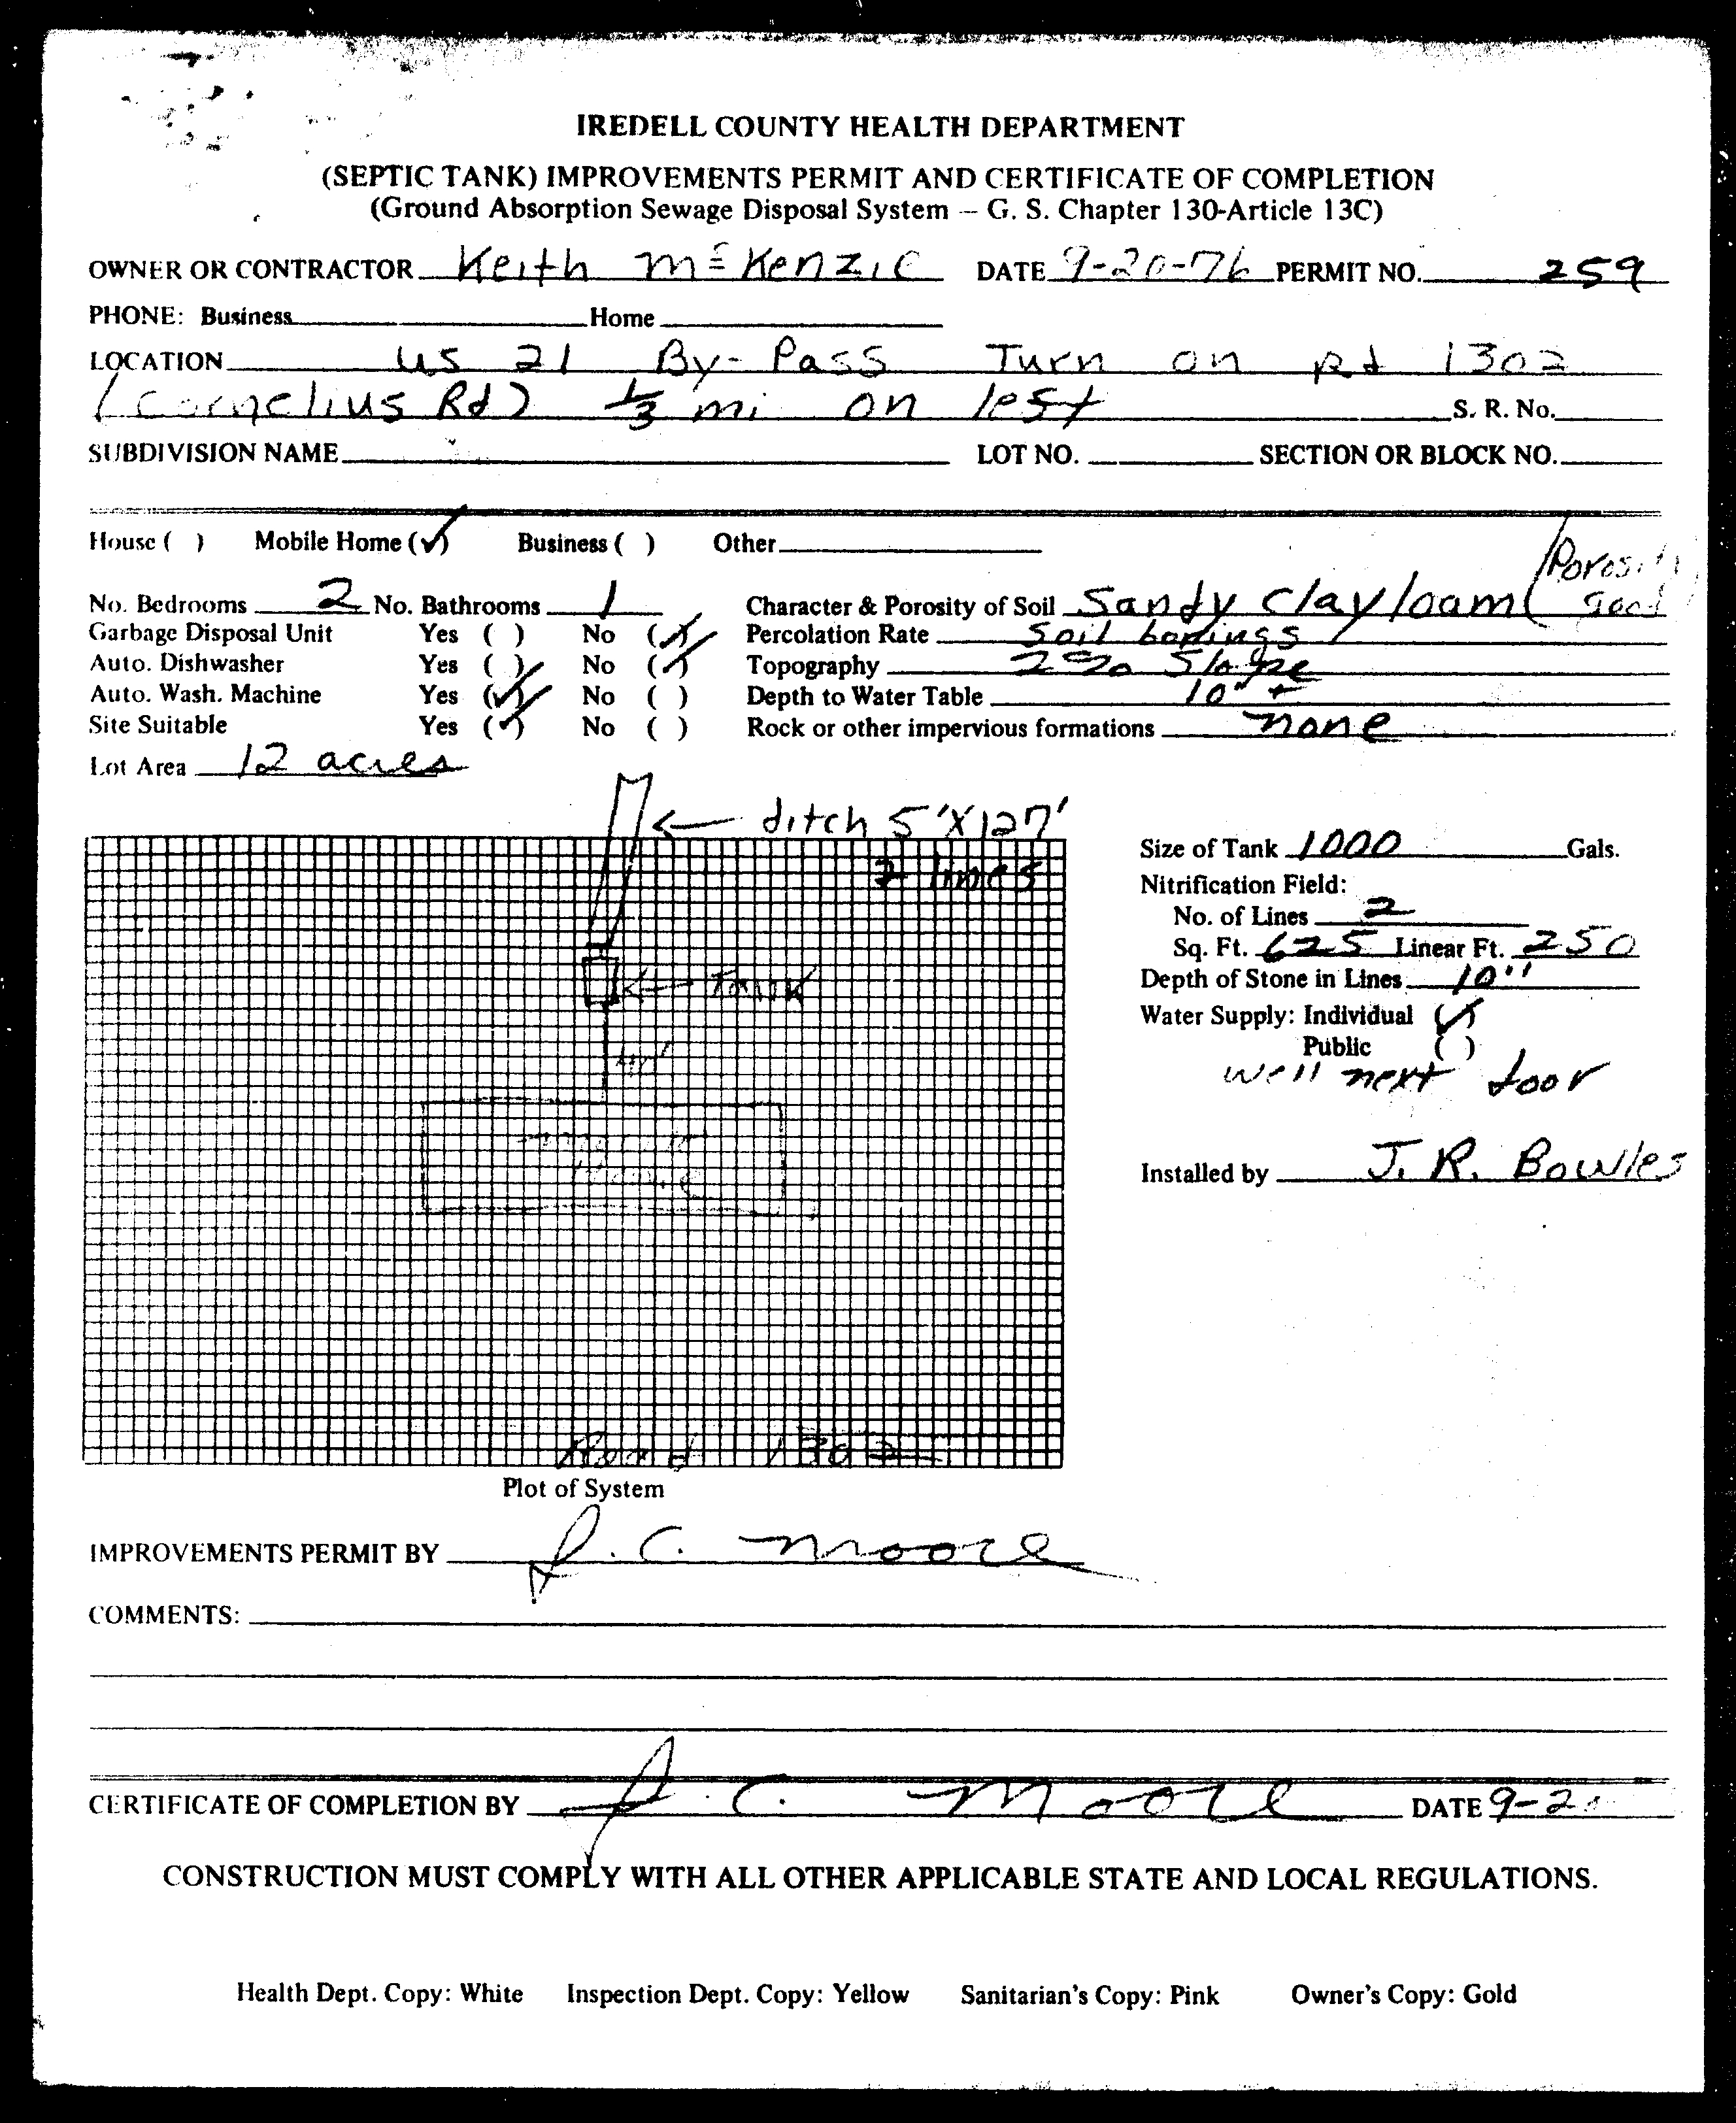 IREDELL COUNTY HEALTH DEPARTMENT
(SEPTIC TANK) IMPROVEMENTS PERMIT AND CERTIFICATE OF COMPLETION
(Ground Absorption Sewage Disposal System -- G. S. Chapter 130-Article 13C)
OWNER OR CONTRACTOR Keith McKenzie DATE 9-20-76 PERMIT NO. 259
PHONE: Business Home
LOCATION US 21 By-Pass Turn on Rd 1302
(Cornelius Rd) 1/3 mi on left S. R. No.
SUBDIVISION NAME LOT NO. SECTION OR BLOCK NO.
House ( ) Mobile Home (✓) Business ( ) Other
No. Bedrooms 2 No. Bathrooms 1 Character & Porosity of Soil Sandy clay loam (Porosity good)
Garbage Disposal Unit Yes ( ) No (✓) Percolation Rate Soil borings
Auto. Dishwasher Yes ( ) No (✓) Topography 2% Slope
Auto. Wash. Machine Yes (✓) No ( ) Depth to Water Table 10" +
Site Suitable Yes (✓) No ( ) Rock or other impervious formations none
Lot Area 12 acres
← ditch 5'X127'
2 lines
Size of Tank 1000 Gals.
Nitrification Field:
No. of Lines 2
Sq. Ft. 625 Linear Ft. 250
Depth of Stone in Lines 10"
Water Supply: Individual (✓)
Public ( )
well next door
Installed by J. R. Bowles
← Tank
Home
Road 1302
Plot of System
IMPROVEMENTS PERMIT BY J. C. Moore
COMMENTS:
CERTIFICATE OF COMPLETION BY J. C. Moore DATE 9-2
CONSTRUCTION MUST COMPLY WITH ALL OTHER APPLICABLE STATE AND LOCAL REGULATIONS.
Health Dept. Copy: White Inspection Dept. Copy: Yellow Sanitarian's Copy: Pink Owner's Copy: Gold